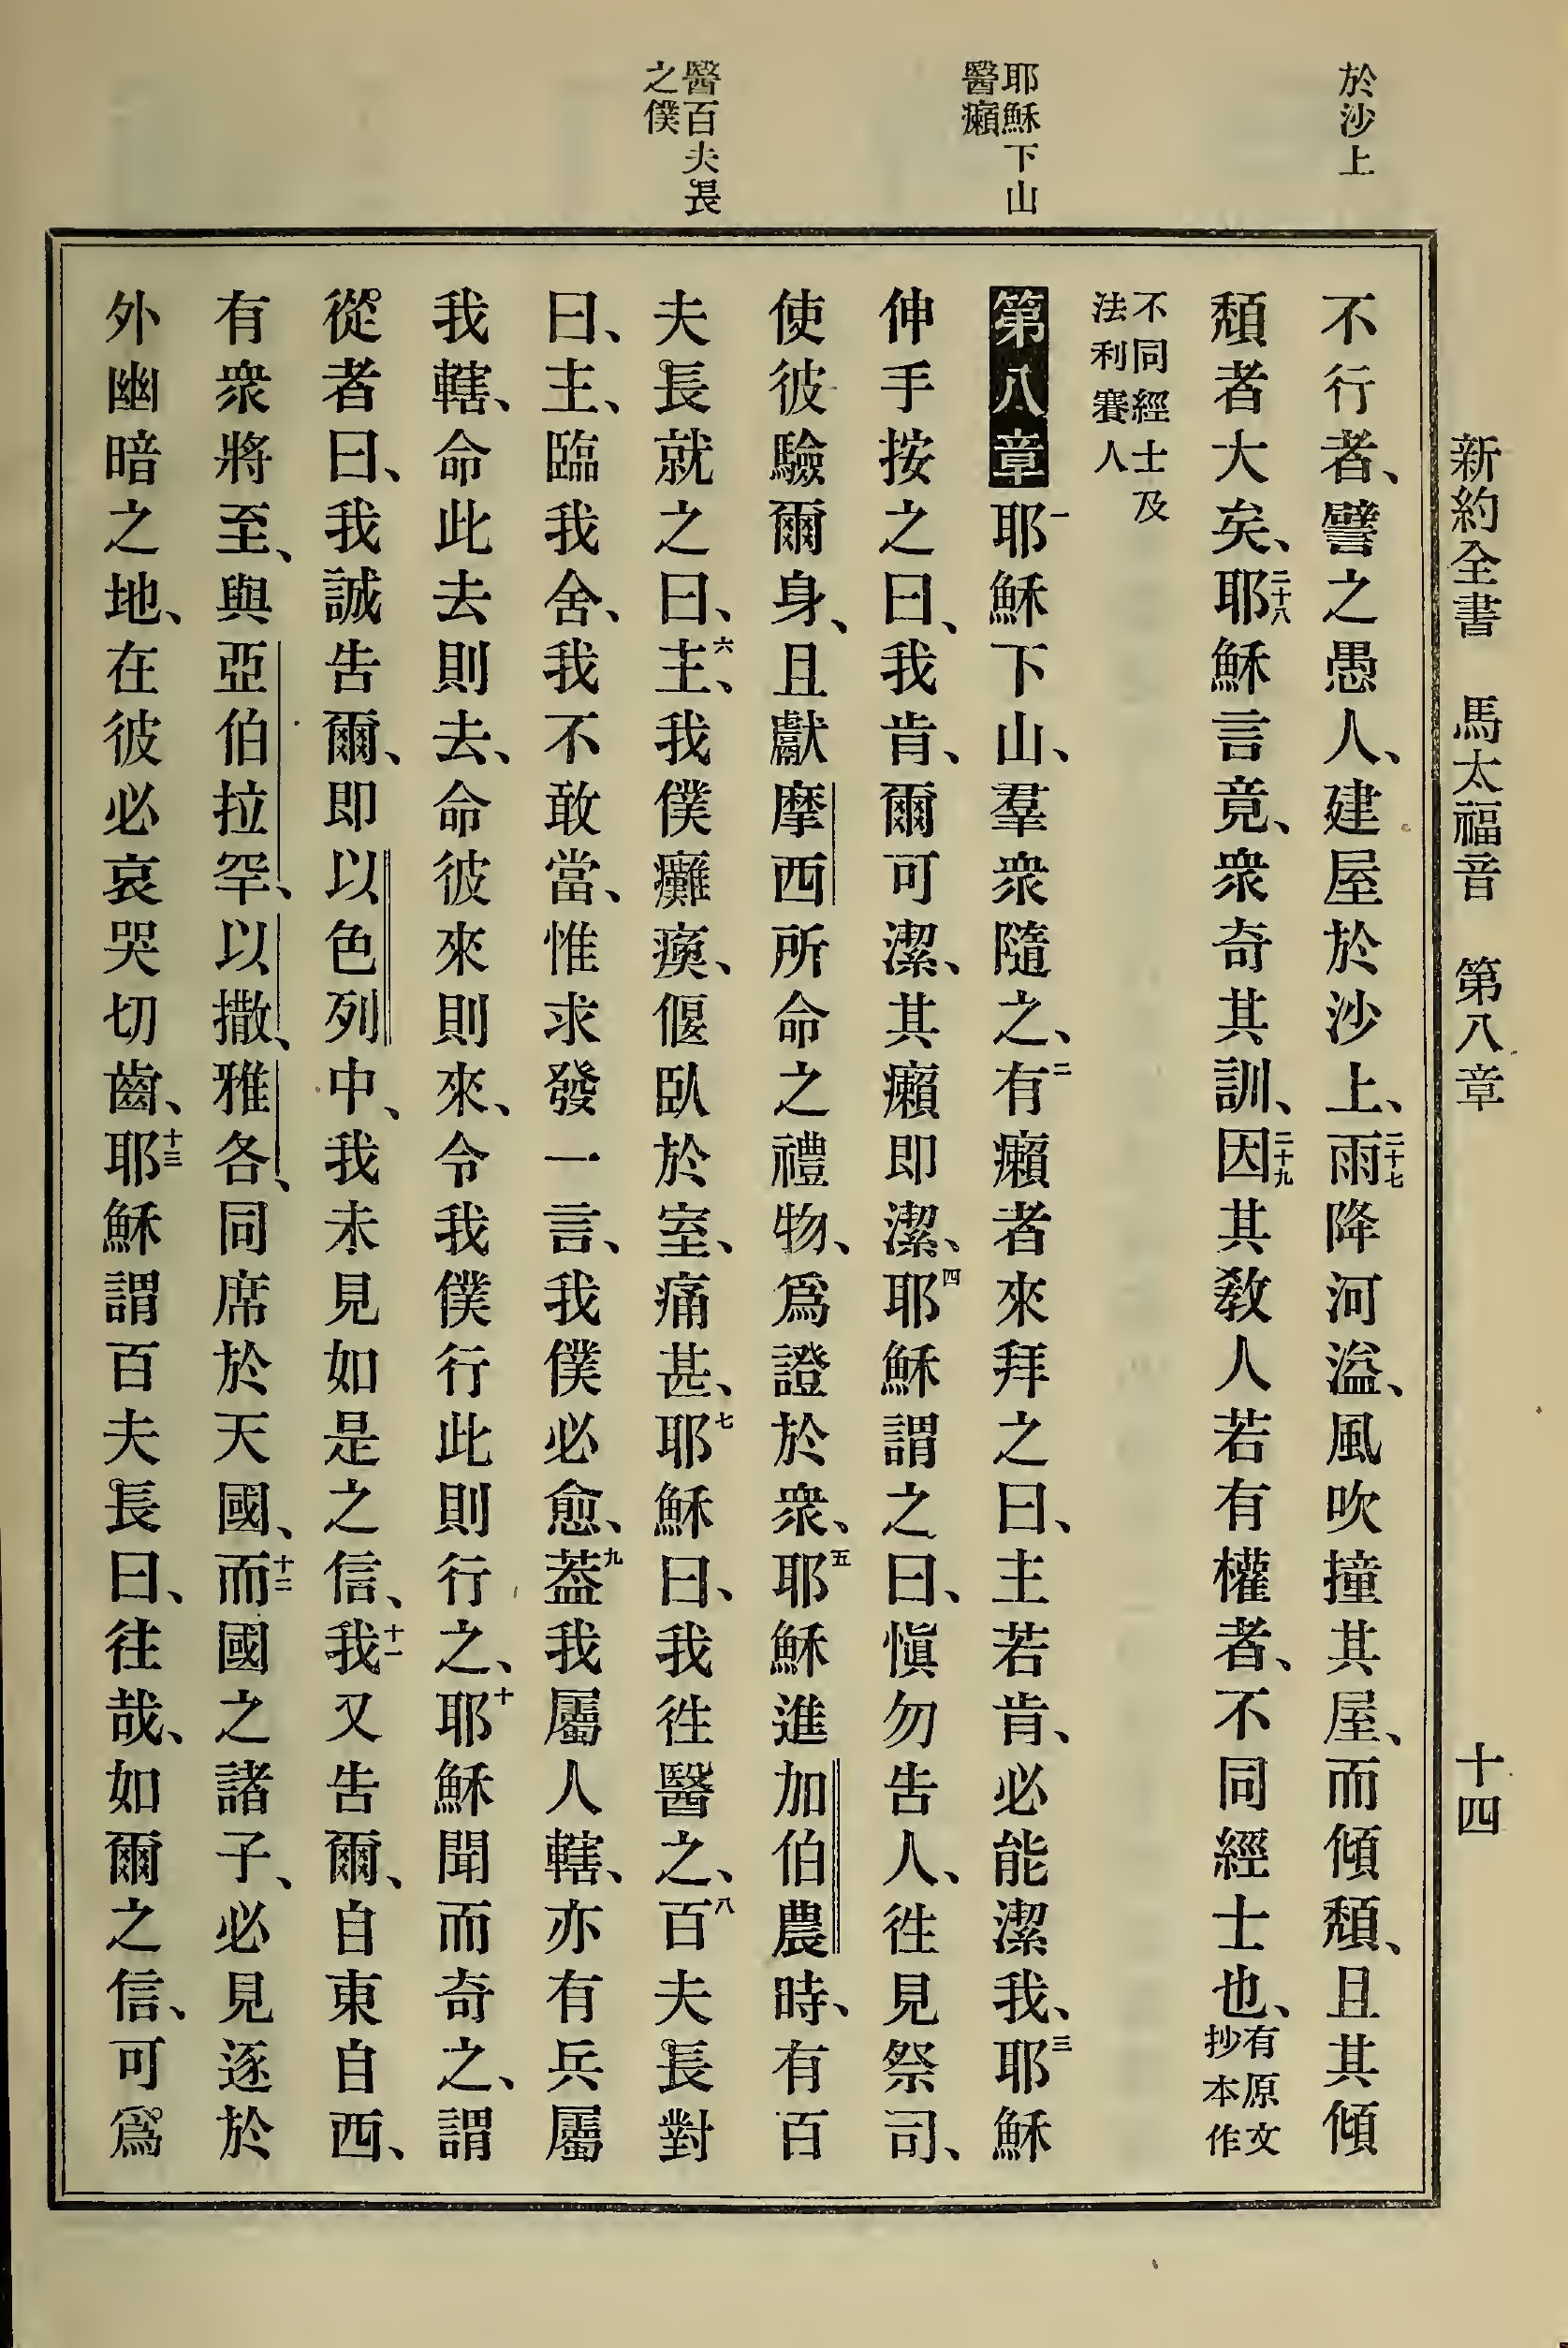 新約全書 馬太福音 第八章 十四
於沙上
耶穌下山
醫癩
醫百夫長
之僕
不行者、譬之愚人、建屋於沙上、二十七雨降河溢、風吹撞其屋、而傾頹、且其傾
頹者大矣、二十八耶穌言竟、衆奇其訓、二十九因其敎人若有權者、不同經士也、有原文抄本作
不同經士及
法利賽人
第八章一耶穌下山、羣衆隨之、二有癩者來拜之曰、主若肯、必能潔我、三耶穌
伸手按之曰、我肯、爾可潔、其癩即潔、四耶穌謂之曰、愼勿告人、徃見祭司、
使彼驗爾身、且獻摩西所命之禮物、爲證於衆、五耶穌進加伯農時、有百
夫長就之曰、六主、我僕癱瘓、偃臥於室、痛甚、七耶穌曰、我徃醫之、八百夫長對
曰、主、臨我舍、我不敢當、惟求發一言、我僕必愈、九蓋我屬人轄、亦有兵屬
我轄、命此去則去、命彼來則來、令我僕行此則行之、十耶穌聞而奇之、謂
從者曰、我誠告爾、即以色列中、我未見如是之信、十一我又告爾、自東自西、
有衆將至、與亞伯拉罕、以撒、雅各、同席於天國、十二而國之諸子、必見逐於
外幽暗之地、在彼必哀哭切齒、十三耶穌謂百夫長曰、往哉、如爾之信、可爲